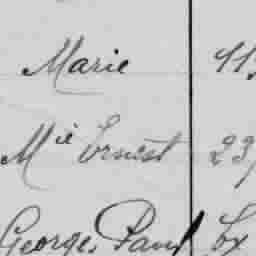 Marie 11
Mie Ernest 23
Georges Paul